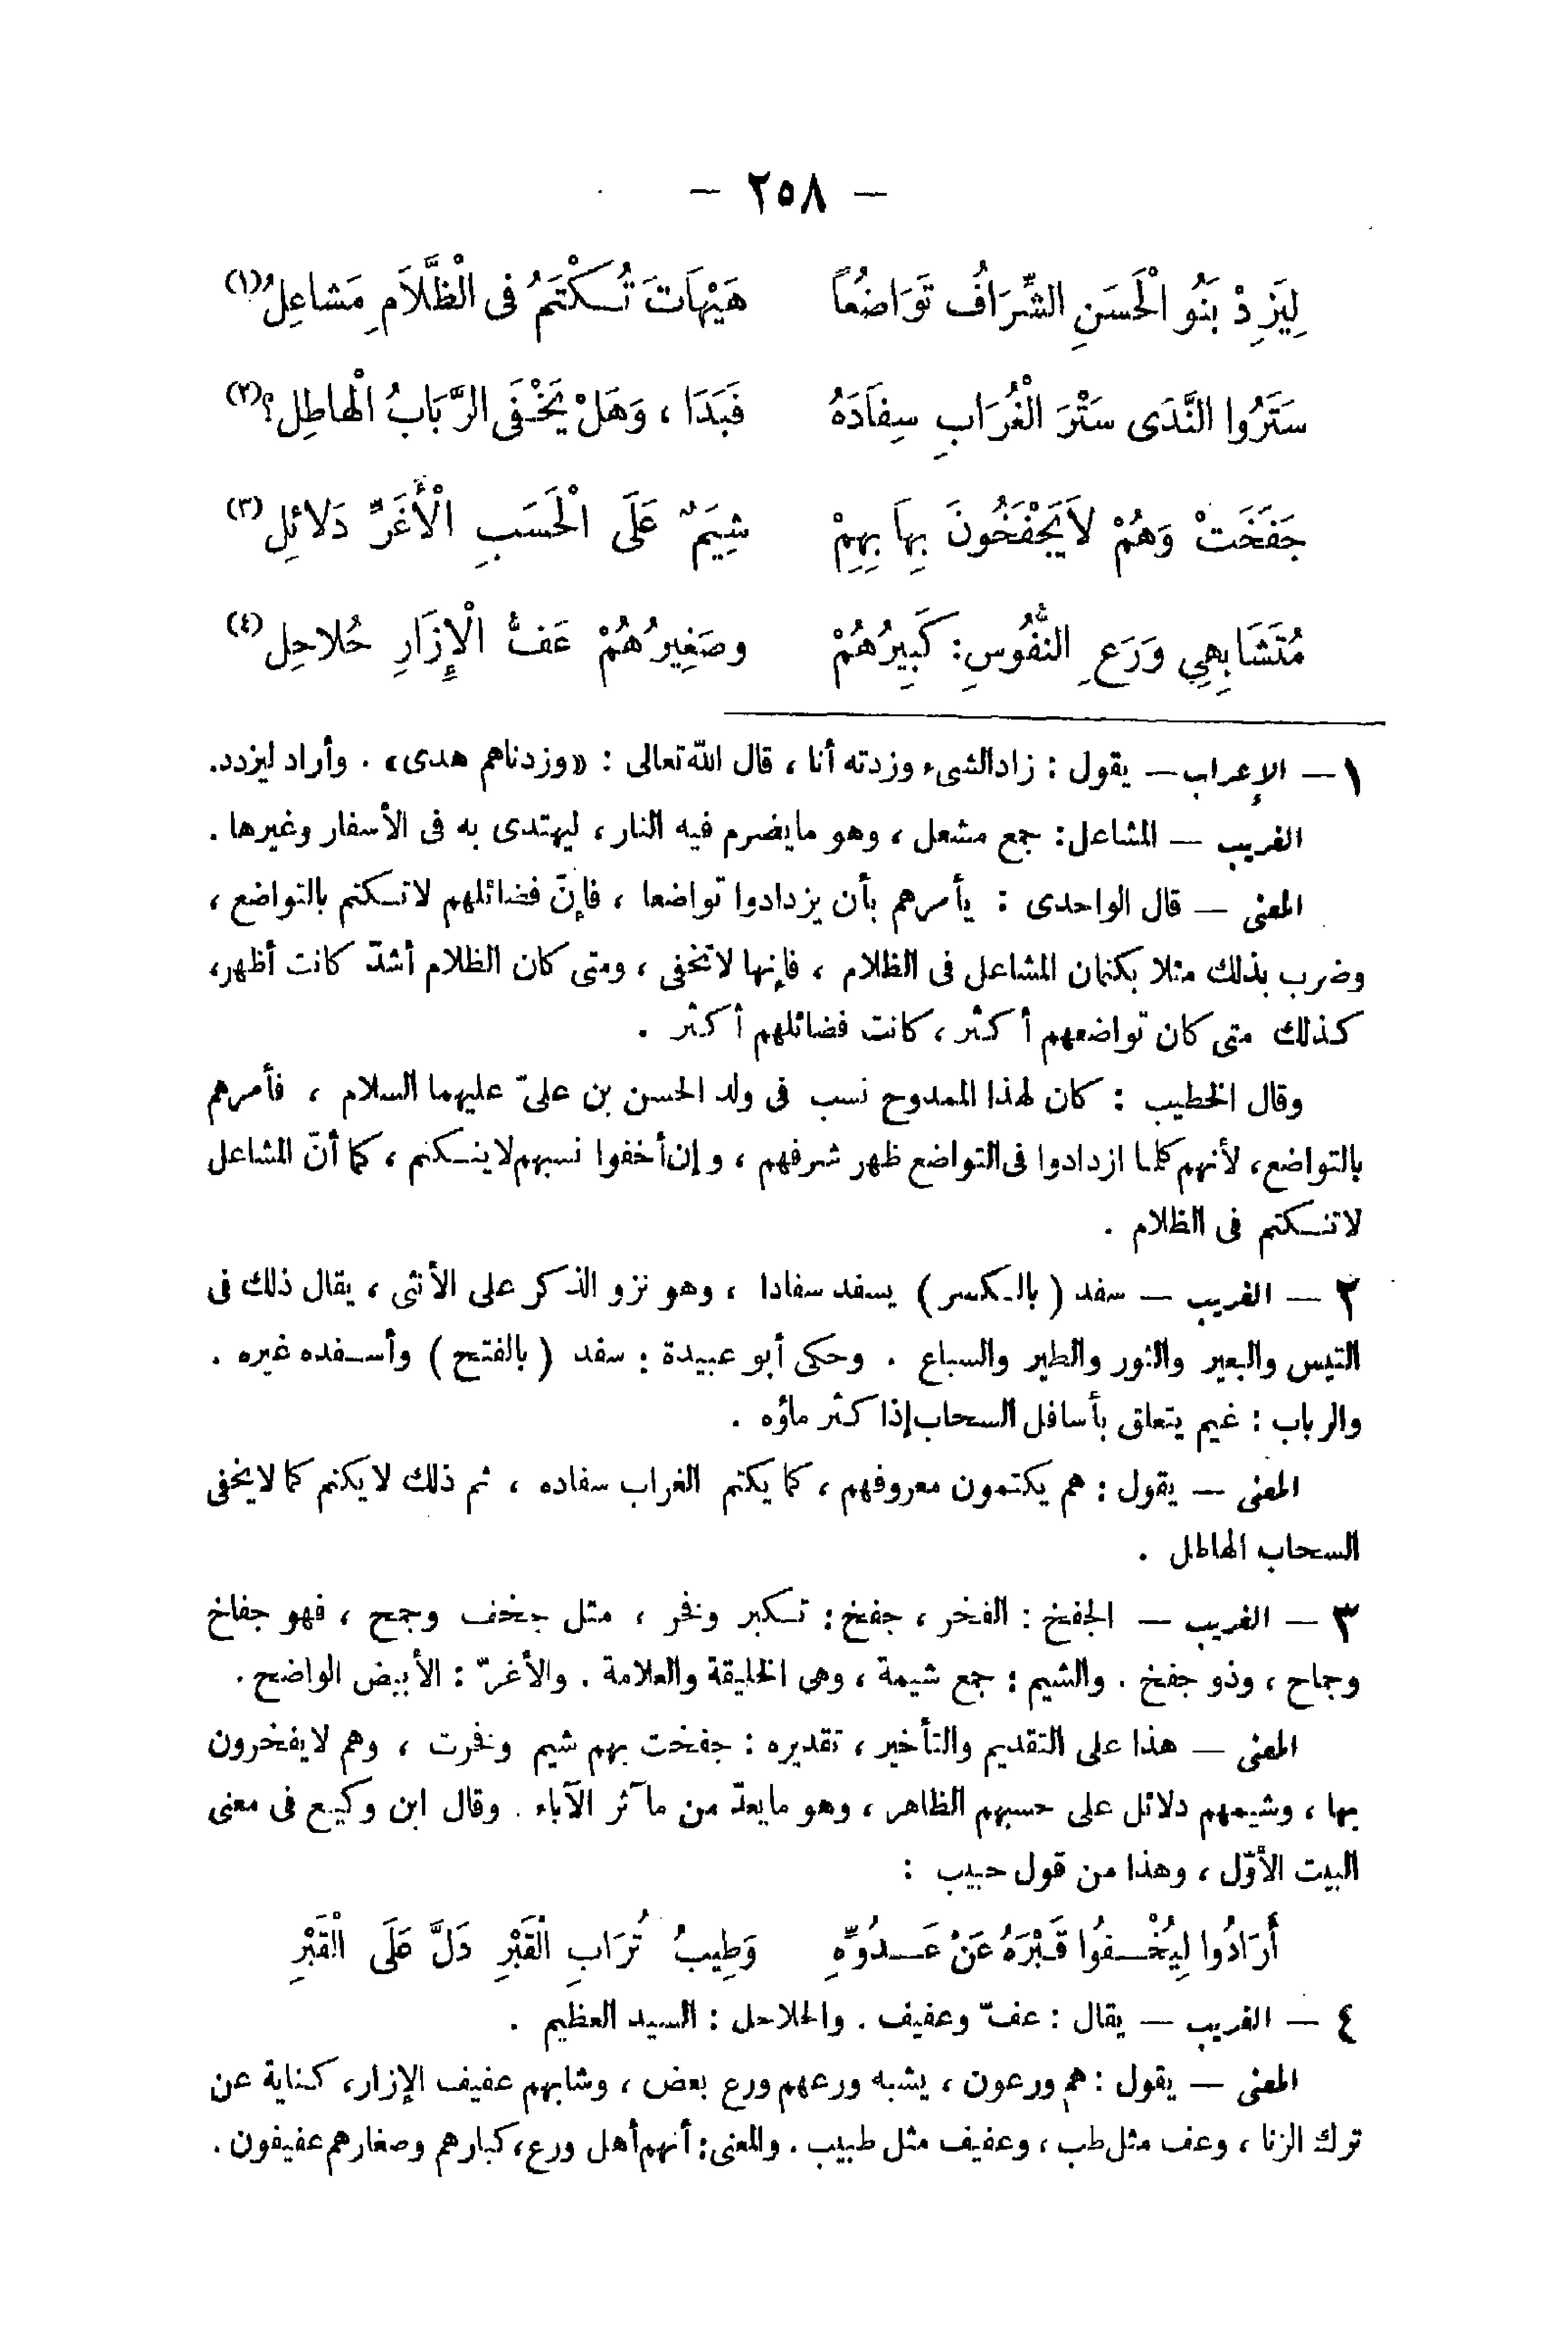 — ٢٥٨ —
لِيَزِدْ بَنُو الْحَسَنِ الشِّرَافُ تَوَاضُعاً هَيْهَاتَ تُكْتَمُ فى الْظَّلَامِ مَشاعِلُ(١)
سَتَرُوا النَّدَى سَتْرَ الْغُرَابِ سِفَادَهُ فَبَدَا ، وَهَلْ يَخْفَى الرَّبَابُ الْهاطِلِ؟(٢)
جَفَخَتْ وَهُمْ لَا يَجْفَخُونَ بِهَا بِهِمْ شِيَمٌ عَلَى الْحَسَبِ الْأَغَرِّ دَلائل(٣)
مُتَشَابِهِي وَرَعِ النُّفُوسِ: كَبِيرُهُمْ وصَغِيرُهُمْ عَفُّ الْإِزَارِ حُلاحِل(٤)
١ — الإعراب — يقول : زاد الشىء وزدته أنا ، قال الله تعالى : «وزدناهم هدى» . وأراد ليزدد.
الغريب — المشاعل: جمع مشعل ، وهو مايضرم فيه النار ، ليهتدى به فى الأسفار وغيرها .
المعنى — قال الواحدى : يأمرهم بأن يزدادوا تواضعا ، فإنّ فضائلهم لاتكتم بالتواضع ،
وضرب بذلك مثلا بكتمان المشاعل فى الظلام ، فإنها لاتخفى ، ومتى كان الظلام أشدّ كانت أظهر،
كذلك متى كان تواضعهم أكثر ، كانت فضائلهم أكثر .
وقال الخطيب : كان لهذا الممدوح نسب فى ولد الحسن بن علىّ عليهما السلام ، فأمرهم
بالتواضع، لأنهم كلما ازدادوا فى التواضع ظهر شرفهم ، وإن أخفوا نسبهم لاينكتم ، كما أنّ المشاعل
لاتنكتم فى الظلام .
٢ — الغريب — سفد ( بالكسر ) يسفد سفادا ، وهو نزو الذكر على الأنثى ، يقال ذلك فى
التيس والبعير والثور والطير والسباع . وحكى أبو عبيدة : سفد ( بالفتح ) وأسفده غيره .
والرباب : غيم يتعلق بأسافل السحاب إذا كثر ماؤه .
المعنى — يقول : هم يكتمون معروفهم ، كما يكتم الغراب سفاده ، ثم ذلك لايكتم كما لايخفى
السحاب الهاطل .
٣ — الغريب — الجفخ : الفخر ، جفخ : تكبر وفخر ، مثل جخف وجمح ، فهو جفاخ
وجماح ، وذو جفخ . والشيم : جمع شيمة ، وهى الخليقة والعلامة . والأغرّ : الأبيض الواضح .
المعنى — هذا على التقديم والتأخير ، تقديره : جفخت بهم شيم وفخرت ، وهم لايفخرون
بها ، وشيمهم دلائل على حسبهم الظاهر ، وهو مايعدّ من مآثر الآباء . وقال ابن وكيع فى معنى
البيت الأوّل ، وهذا من قول حبيب :
أَرَادُوا لِيُخْفُوا قَبْرَهُ عَنْ عَدُوِّهِ وَطِيبُ تُرَابِ الْقَبْرِ دَلَّ عَلَى الْقَبْرِ
٤ — الغريب — يقال : عفّ وعفيف . والحلاحل : السيد العظيم .
المعنى — يقول : هم ورعون ، يشبه ورعهم ورع بعض ، وشابهم عفيف الإزار، كناية عن
ترك الزنا ، وعف مثل طب ، وعفيف مثل طبيب . والمعنى: أنهم أهل ورع، كبارهم وصغارهم عفيفون .